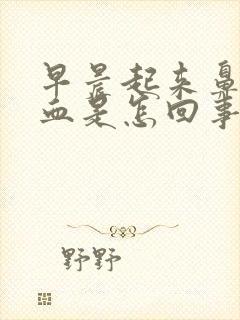 早晨起来鼻
血是怎回事
野野